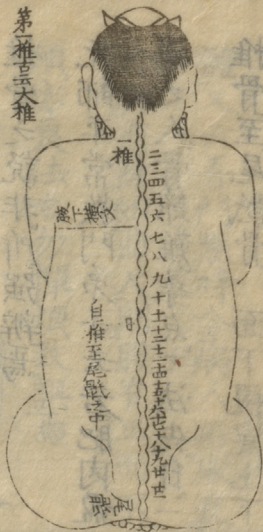 第一椎古云大椎
一椎
二三四五六七八九十十一十二十三十四十五十六十七十八十九廿廿一
腋下横文
自椎至尾骶之中
尾骶